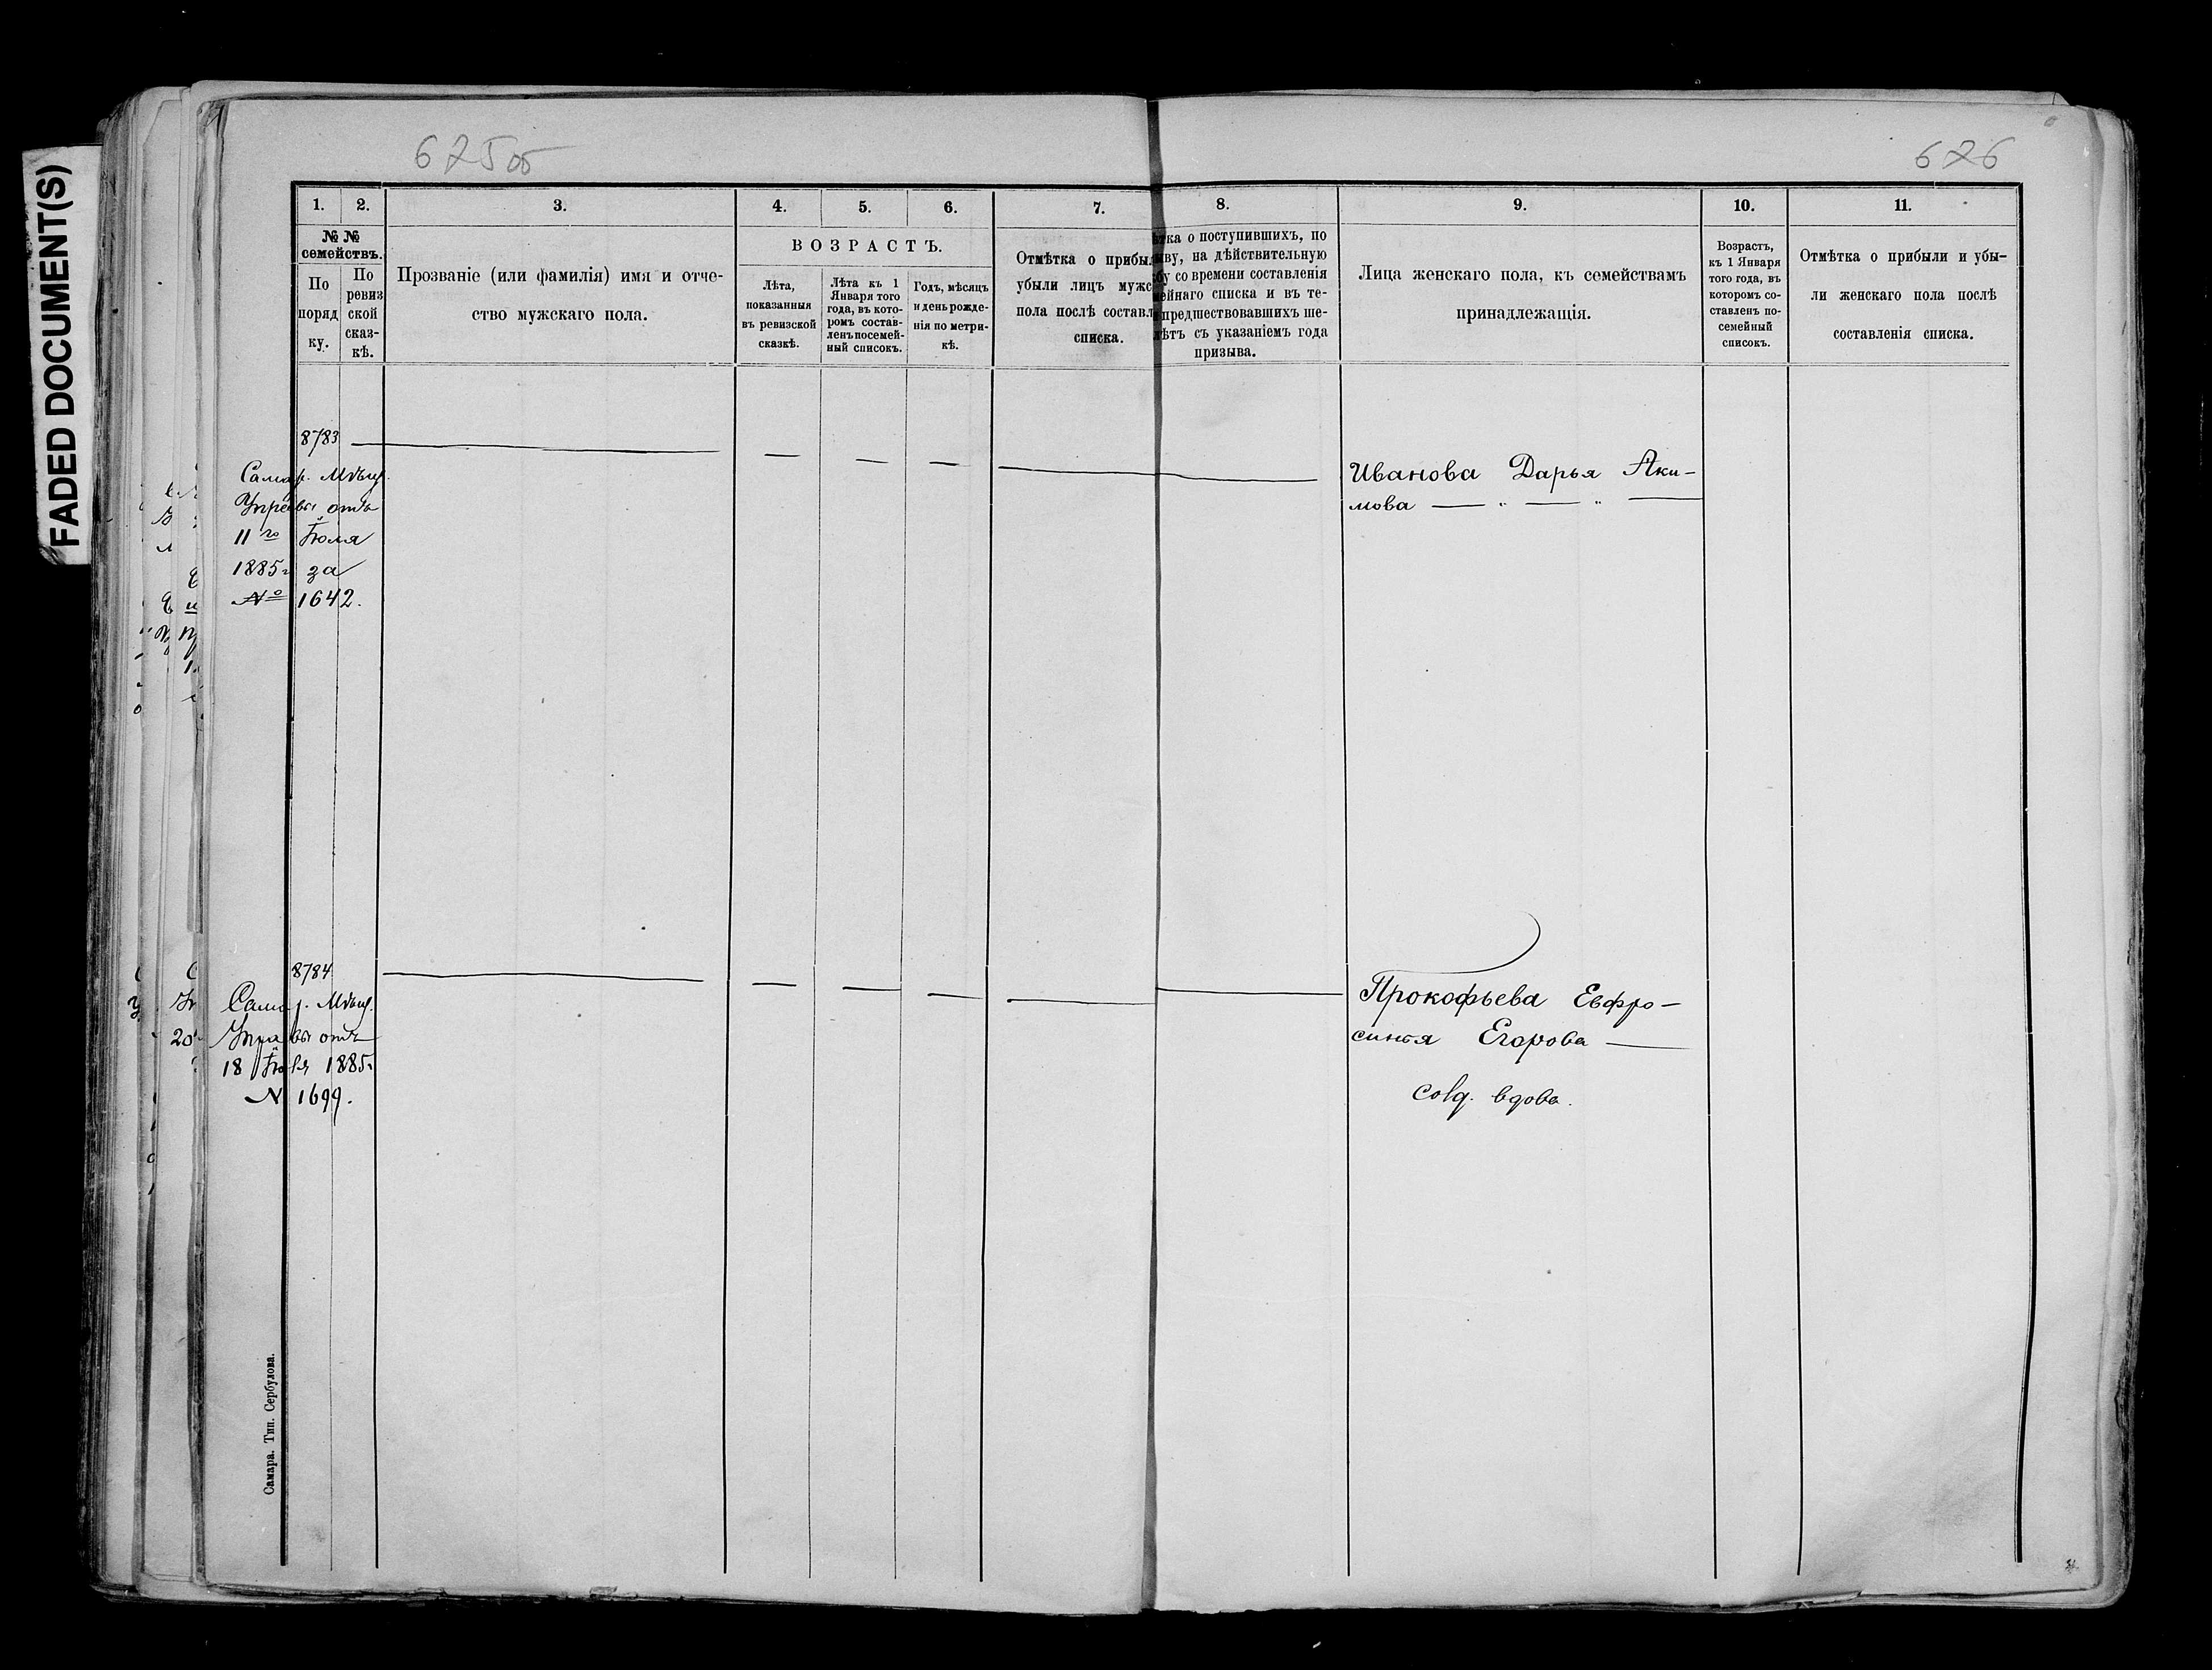 FADED DOCUMENT(S)
675 об
676
1. 2. 3. 4. 5. 6. 7. 8. 9. 10. 11.
№ №
семействъ.
По
поряд
ку.
По
ревиз
ской
сказ-
кѣ.
Прозваніе (или фамилія) имя и отче-
ство мужскаго пола.
ВОЗРАСТЪ.
Лѣта,
показанныя
въ ревизской
сказкѣ.
Лѣта къ 1
Января того
года, въ кото-
ромъ состав-
ленъ посемей-
ный списокъ.
Годъ, мѣсяцъ
и день рожде-
нія по метри-
кѣ.
Отмѣтка о прибыл
убыли лицъ мужс
пола послѣ составл
списка.
ѣтка о поступившихъ, по
ыву, на дѣйствительную
бу со времени составленія
мейнаго списка и въ те-
предшествовавшихъ ше-
лѣтъ съ указаніемъ года
призыва.
Лица женскаго пола, къ семействамъ
принадлежащія.
Возрастъ,
къ 1 Января
того года, въ
которомъ со-
ставленъ по-
семейный
списокъ.
Отмѣтка о прибыли и убы-
ли женскаго пола послѣ
составленія списка.
8783
Самар. Мѣщ.
Управы отъ
11го
1885г за
№ 1642.
Иванова Дарья Аки-
мова — " — " —
8784
Самар. Мѣщ.
Управы отъ
18 Іюля 1885г
N 1699.
Прокофьева Евфро-
синья Егорова —
солд. вдова.
Самара. Тип. Сербулова.